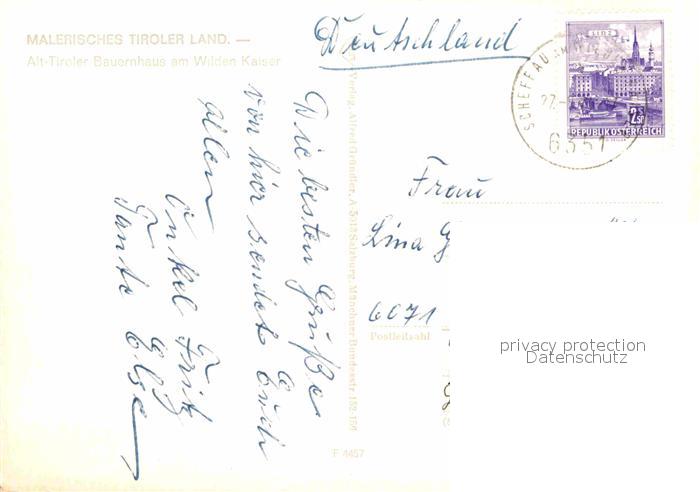 MALERISCHES TIROLER LAND. —
Alt-Tiroler Bauernhaus am Wilden Kaiser
Deutschland
LINZ
2.50
REPUBLIK ÖSTERREICH
SCHEFFAU AM
27.
6351
Die besten Grüße
von hier sendet Euch
allen
Onkel Fritz
Tante Else
Verlag: Alfred Gründler, A 5013 Salzburg, Münchner Bundesstr 152-156
Frau
Lina G
6071
Postleitzahl
F 4457
privacy protection
Datenschutz